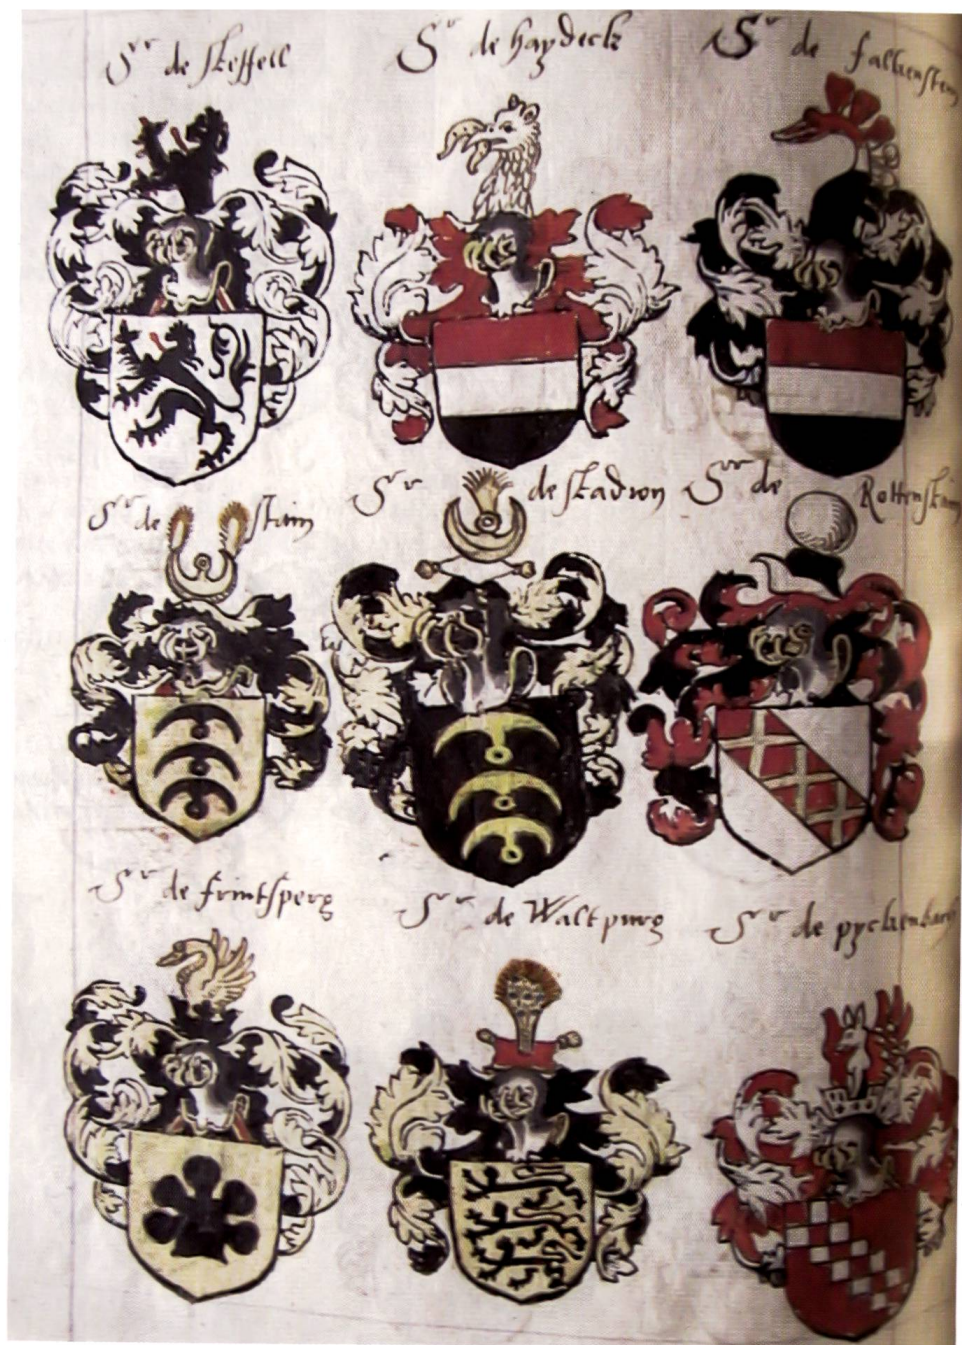 Sr de skeffell
Sr de haydeck
Sr de falkensteyn
Sr de stain
Sr de stadion
Sr de Rottenstain
Sr de frintsperg
Sr de Waltpurg
Sr de